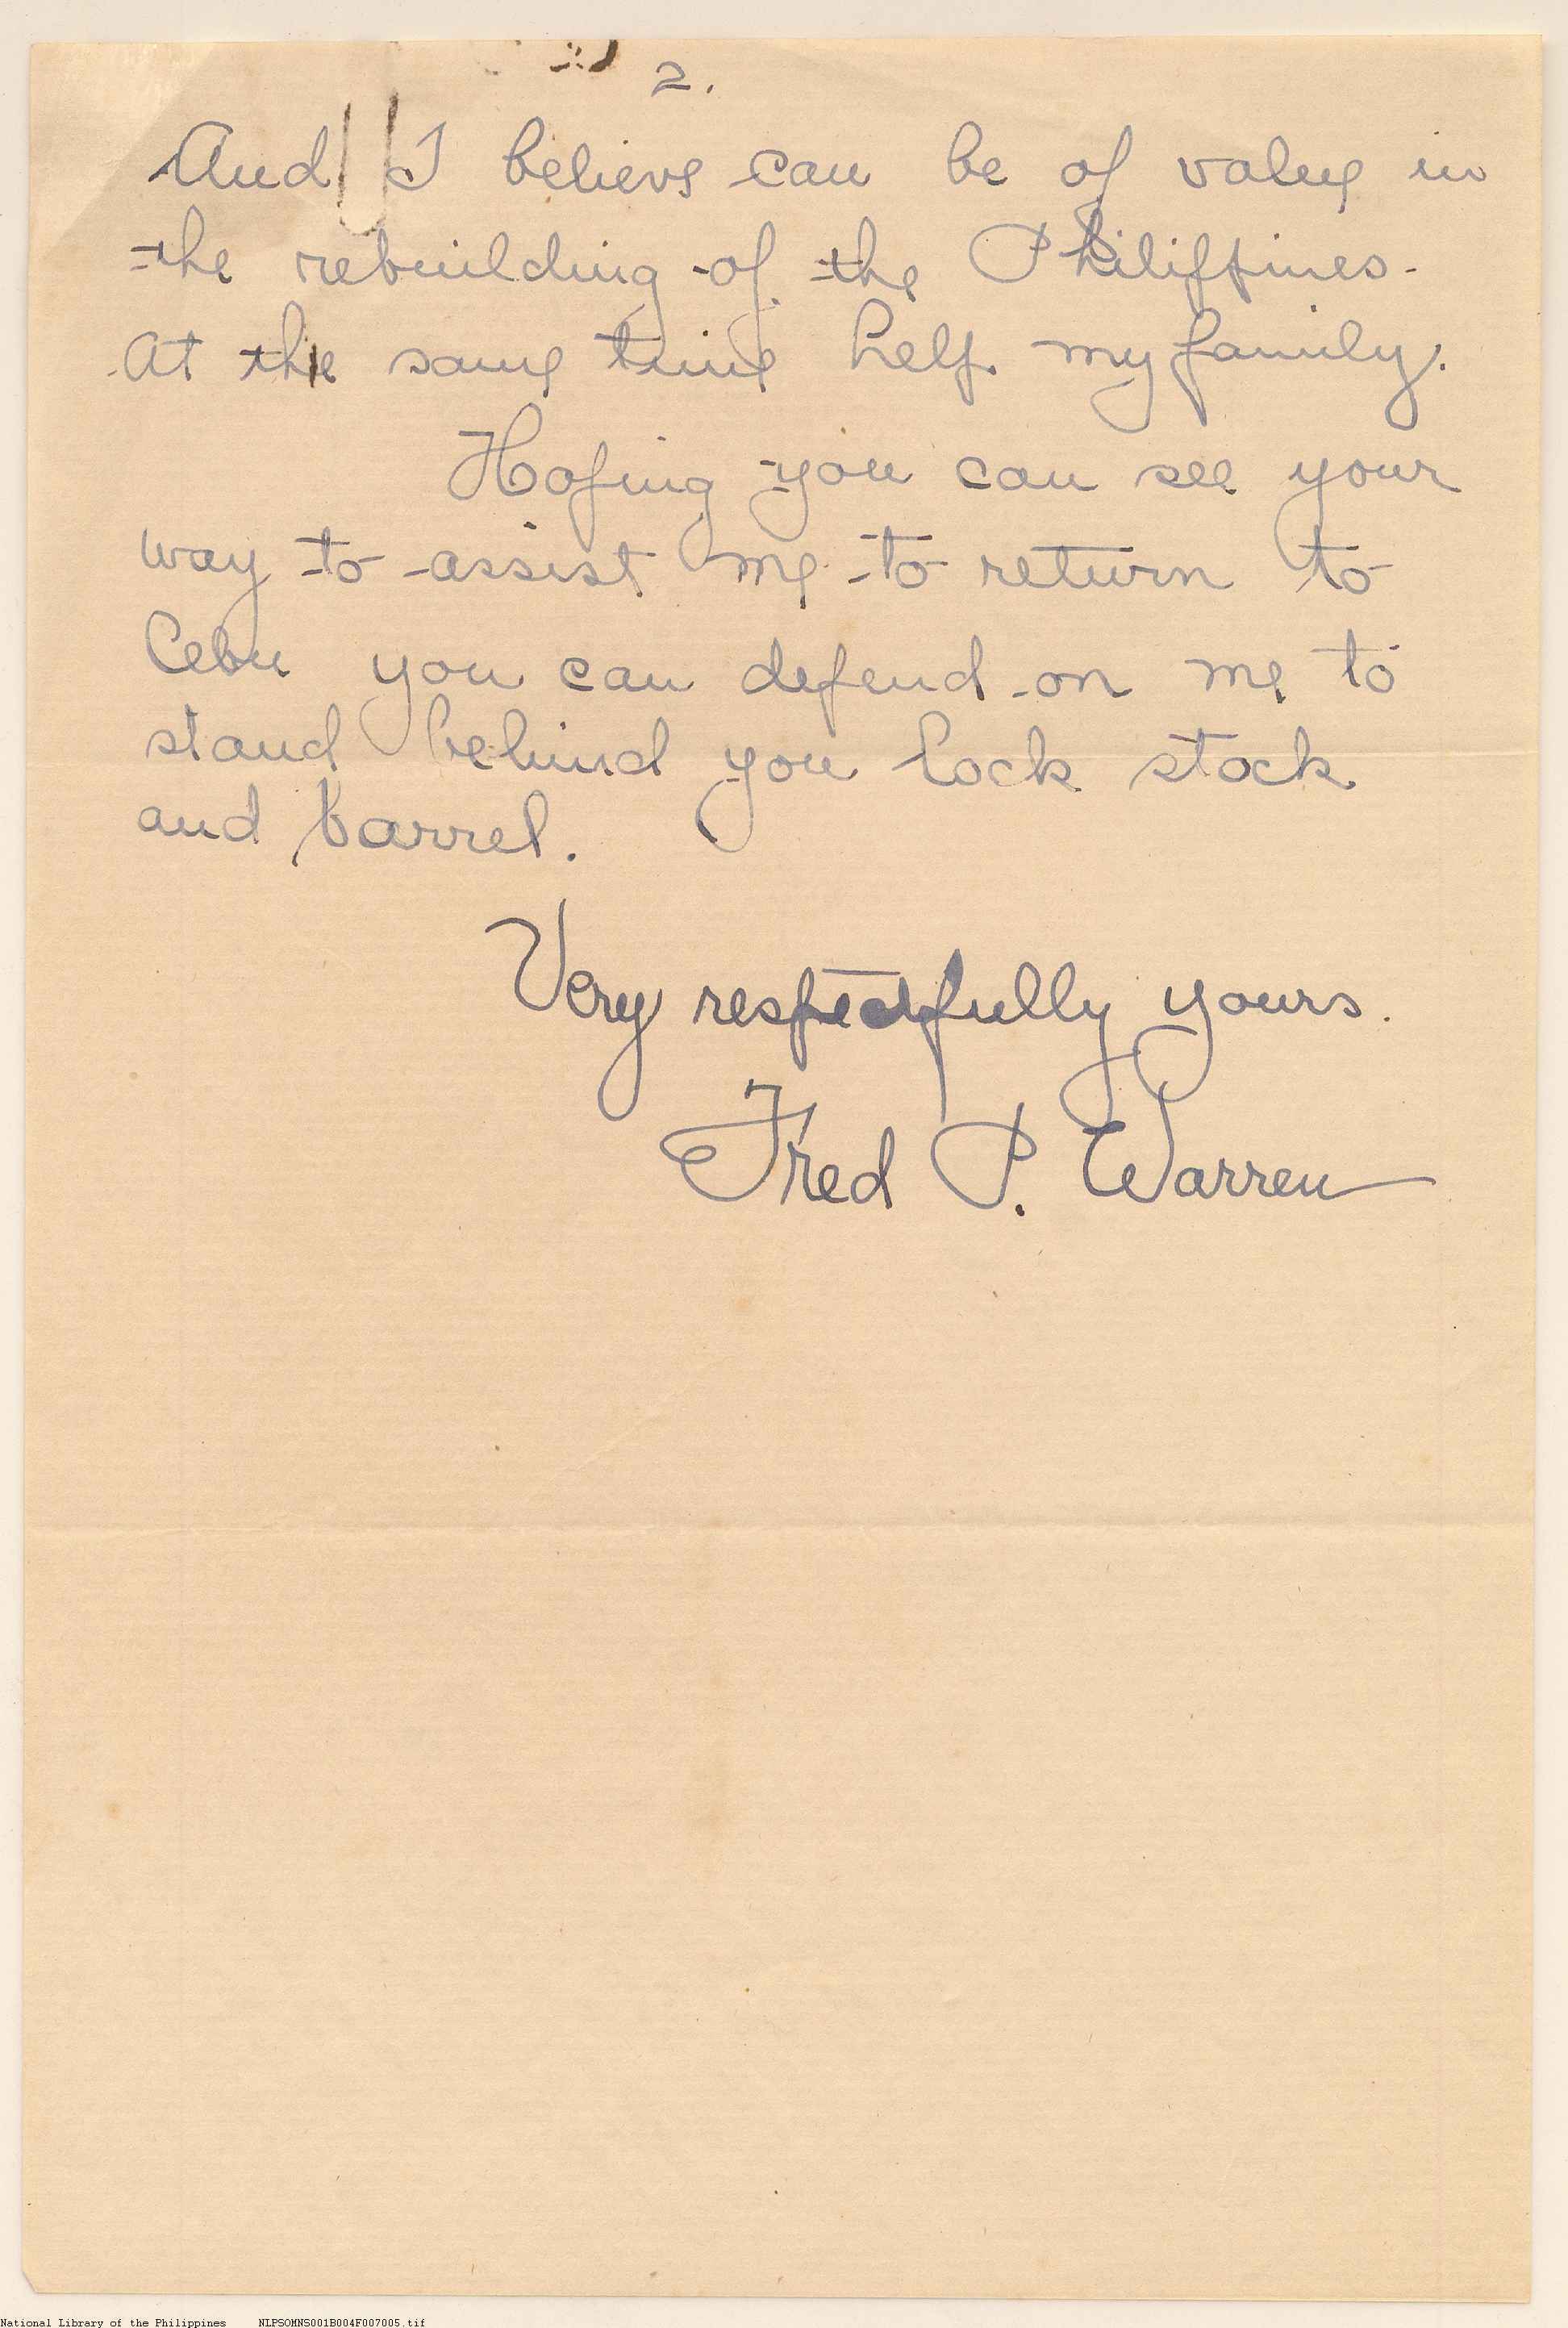 2.
And I believe can be of value in
the rebuilding of the Philippines.
At the same time help my family.
Hoping you can see your
way to assist me to return to
Cebu you can depend on me to
stand behind you lock stock
and barrel.
Very respectfully yours.
Fred P. Warren
National Library of the Philippines NLPSOMNS001B004F007005.tif